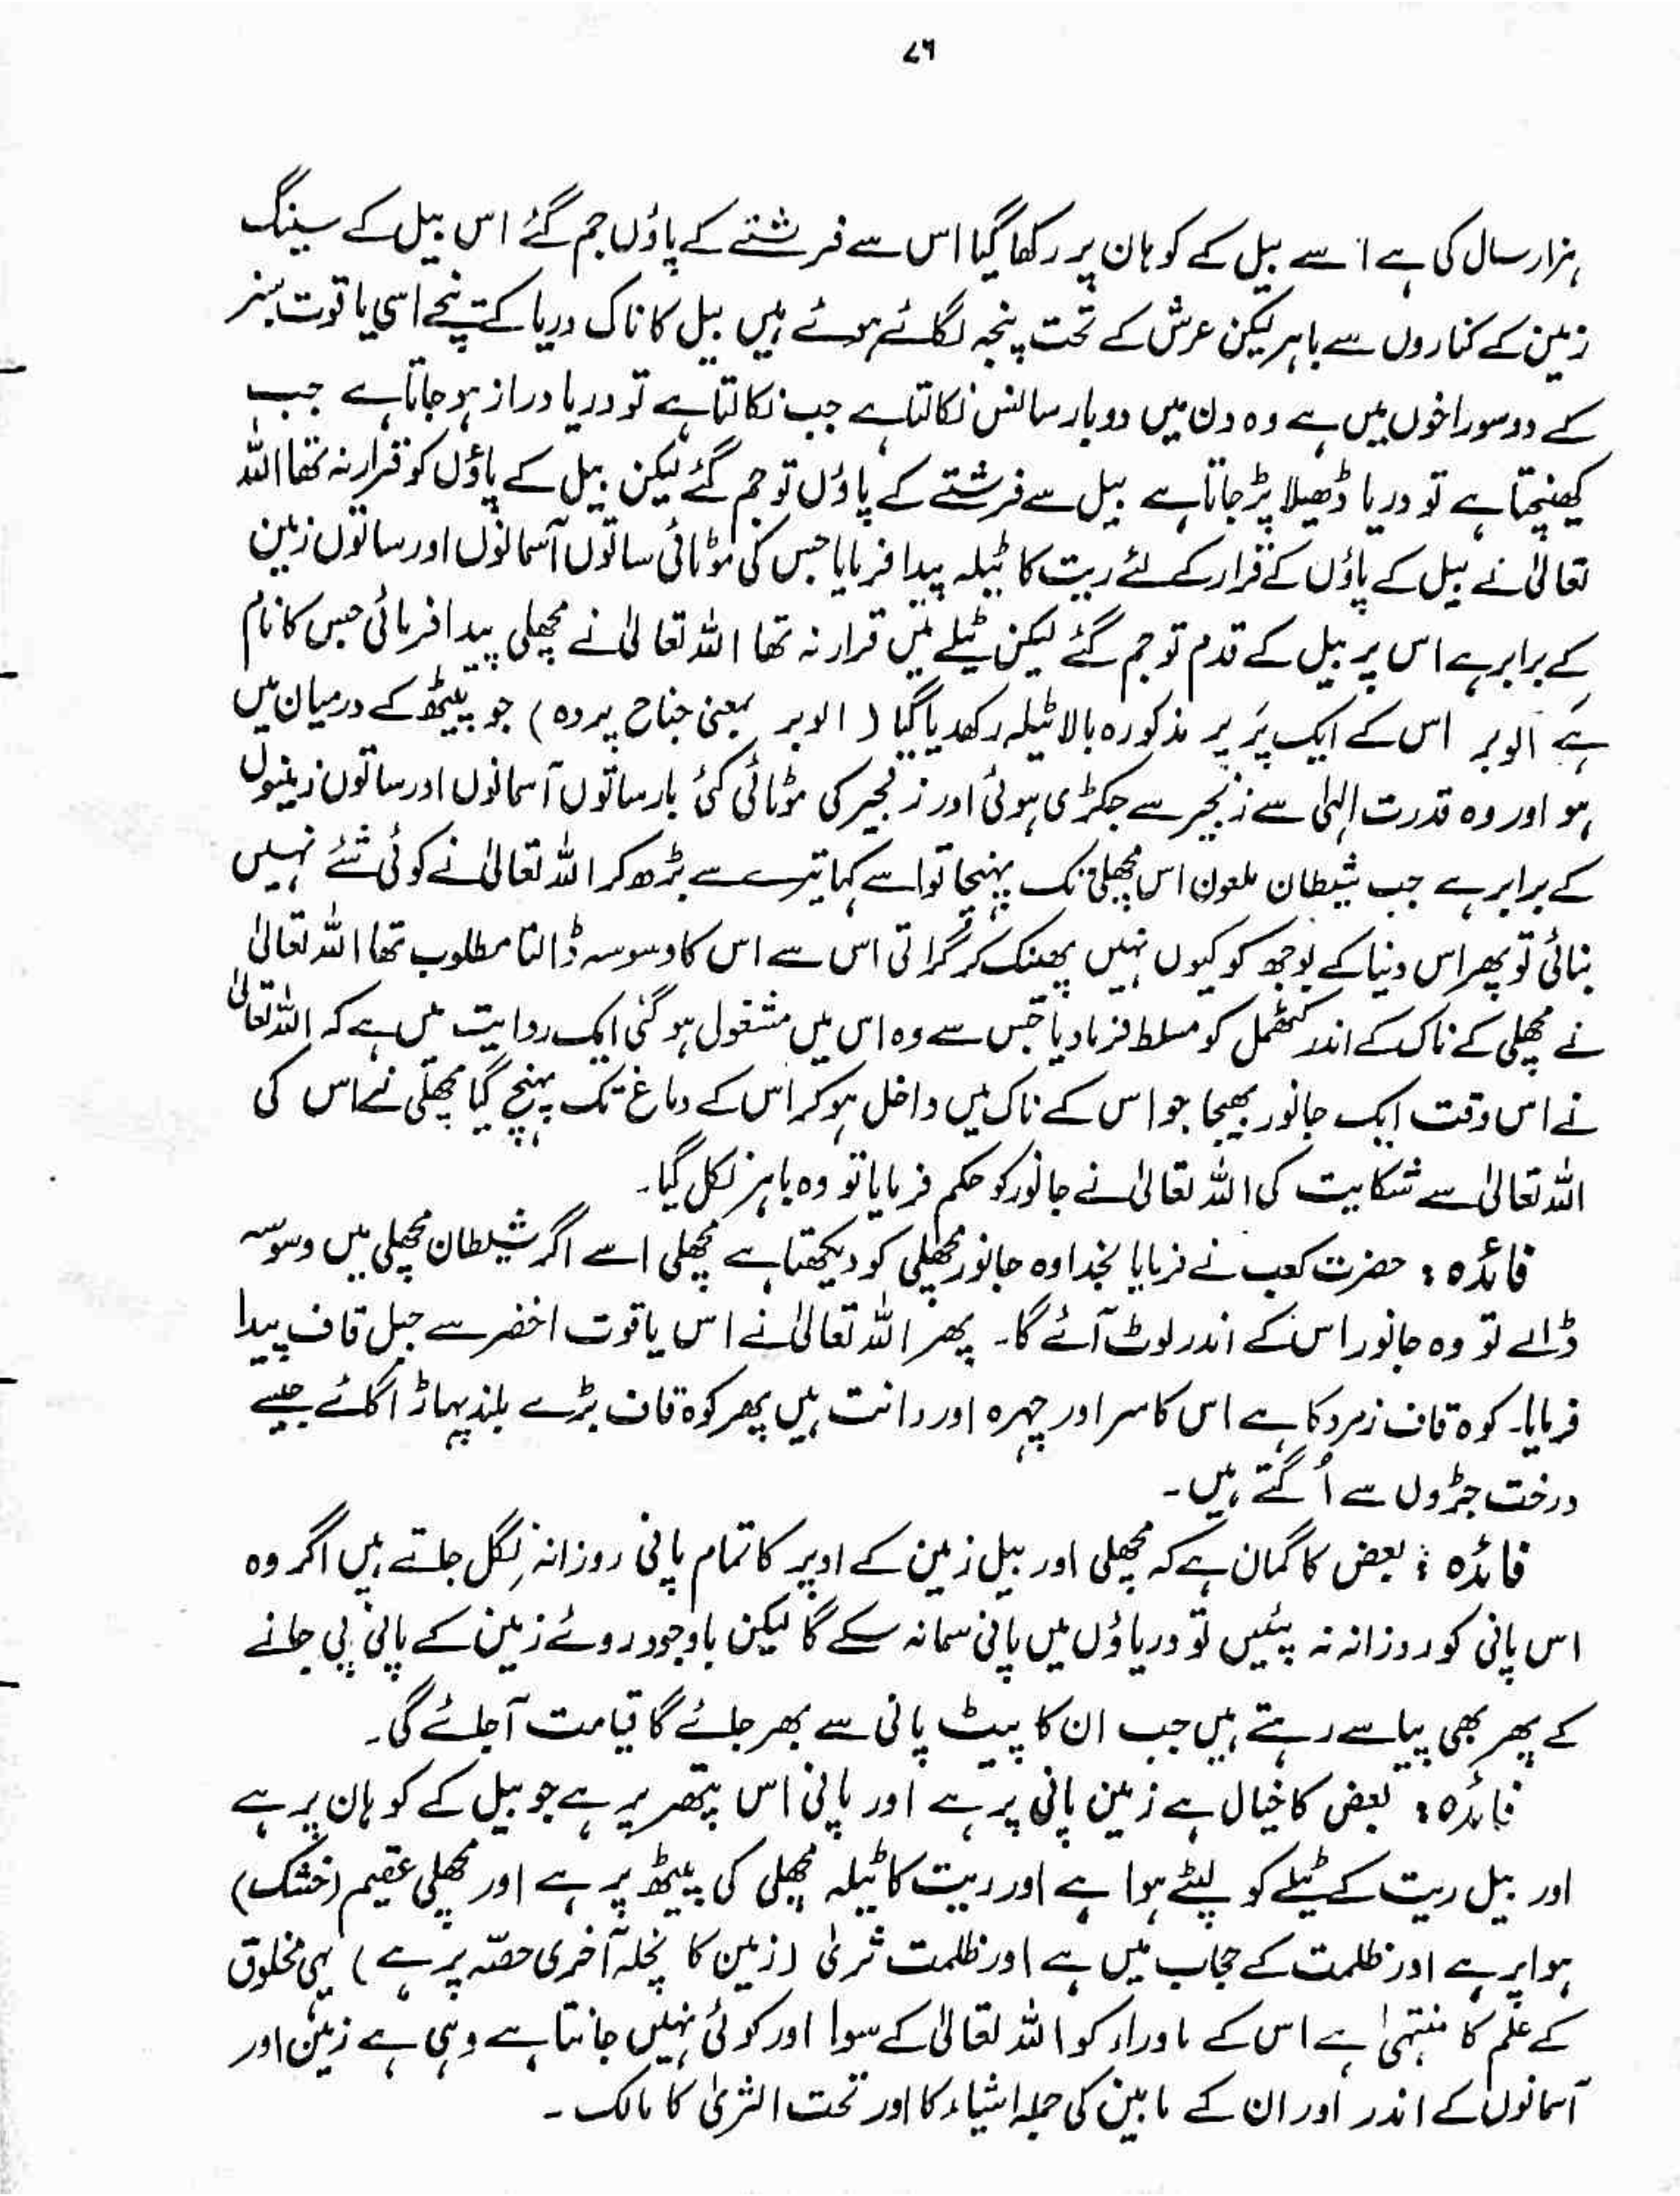 ۷۶
ہزار سال کی ہے اسے بیل کے کوہان پر رکھا گیا اس سے فرشتے کے پاؤں جم گئے اس بیل کے سینگ
زمین کے کناروں سے باہر لیکن عرش کے تحت پنجہ لگائے ہوئے ہیں بیل کا ناک دریا کے نیچے اسی یاقوت سبز
کے دو سوراخوں میں ہے وہ دن میں دو بار سانس نکالتا ہے جب نکالتا ہے تو دریا دراز ہو جاتا ہے جب
کھینچتا ہے تو دریا ڈھیلا پڑ جاتا ہے بیل سے فرشتے کے پاؤں تو جم گئے لیکن بیل کے پاؤں کو قرار نہ تھا اللہ
تعالیٰ نے بیل کے پاؤں کے قرار کے لئے ریت کا ٹیلہ پیدا فرمایا جس کی موٹائی ساتوں آسمانوں اور ساتوں زمین
کے برابر ہے اس پر بیل کے قدم تو جم گئے لیکن ٹیلے میں قرار نہ تھا اللہ تعالیٰ نے مچھلی پیدا فرمائی جس کا نام
ہے الوبر اس کے ایک پَر پر مذکورہ بالا ٹیلہ رکھدیا گیا ( الوبر بمعنی جناح پردہ ) جو پیٹھ کے درمیان میں
ہو اور وہ قدرت الہیٰ سے زنجیر سے جکڑی ہوئی اور زنجیر کی موٹائی کئی بار ساتوں آسمانوں اور ساتوں زمینوں
کے برابر ہے جب شیطان ملعون اس مچھلی تک پہنچا تو اسے کہا تیرے سے بڑھ کر اللہ تعالیٰ نے کوئی شئے نہیں
بنائی تو پھر اس دنیا کے بوجھ کو کیوں نہیں پھینک کر گراتی اس سے اس کا وسوسہ ڈالنا مطلوب تھا اللہ تعالیٰ
نے مچھلی کے ناک کے اندر کھٹمل کو مسلط فرما دیا جس سے وہ اس میں مشغول ہو گئی ایک روایت میں ہے کہ اللہ تعالیٰ
نے اس وقت ایک جانور بھیجا جو اس کے ناک میں داخل ہو کر اس کے دماغ تک پہنچ گیا مچھلی نے اس کی
اللہ تعالیٰ سے شکایت کی اللہ تعالیٰ نے جانور کو حکم فرمایا تو وہ باہر نکل گیا۔
فائدہ : حضرت کعب نے فرمایا بخدا وہ جانور مچھلی کو دیکھتا ہے مچھلی اسے اگر شیطان مچھلی میں وسوسہ
ڈالے تو وہ جانور اس کے اندر لوٹ آئے گا۔ پھر اللہ تعالیٰ نے اس یاقوت اخضر سے جبل قاف پیدا
فرمایا۔ کوہ قاف زمرد کا ہے اس کا سر اور چہرہ اور دانت ہیں پھر کوہ قاف بڑے بلند پہاڑ اگائے جیسے
درخت جڑوں سے اُگتے ہیں۔
فائدہ : بعض کا گمان ہے کہ مچھلی اور بیل زمین کے اوپر کا تمام پانی روزانہ نِگل جاتے ہیں اگر وہ
اس پانی کو روزانہ نہ پئیں تو دریاؤں میں پانی سما نہ سکے گا لیکن باوجود روئے زمین کے پانی پی جانے
کے پھر بھی پیاسے رہتے ہیں جب ان کا پیٹ پانی سے بھر جائے گا قیامت آجائے گی۔
فائدہ : بعض کا خیال ہے زمین پانی پر ہے اور پانی اس پتھر پر ہے جو بیل کے کوہان پر ہے
اور بیل ریت کے ٹیلے کو لپٹے ہوا ہے اور ریت کا ٹیلہ مچھلی کی پیٹھ پر ہے اور مچھلی عقیم (خشک)
ہوا پر ہے اور ظلمت کے حجاب میں ہے اور ظلمت ثریٰ (زمین کا نچلہ آخری حصّہ پر ہے ) یہی مخلوق
کے علم کا منتہیٰ ہے اس کے ماوراء کو اللہ تعالیٰ کے سوا اور کوئی نہیں جانتا ہے وہی ہے زمین اور
آسمانوں کے اندر اور ان کے مابین کی جملہ اشیاء کا اور تحت الثریٰ کا مالک ۔